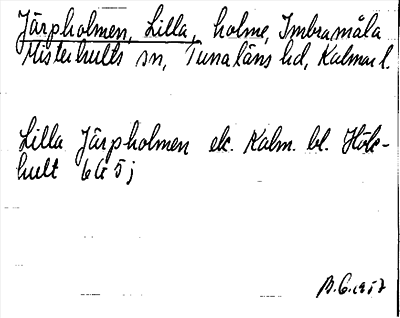 Järpholmen, Lilla, holme, Imbramåla
Misterhults sn, Tunaläns hd, Kalmar l.
Lilla Järpholmen ek. Kalm. bl. Hök-
hult 6G5j
B.G. 1957